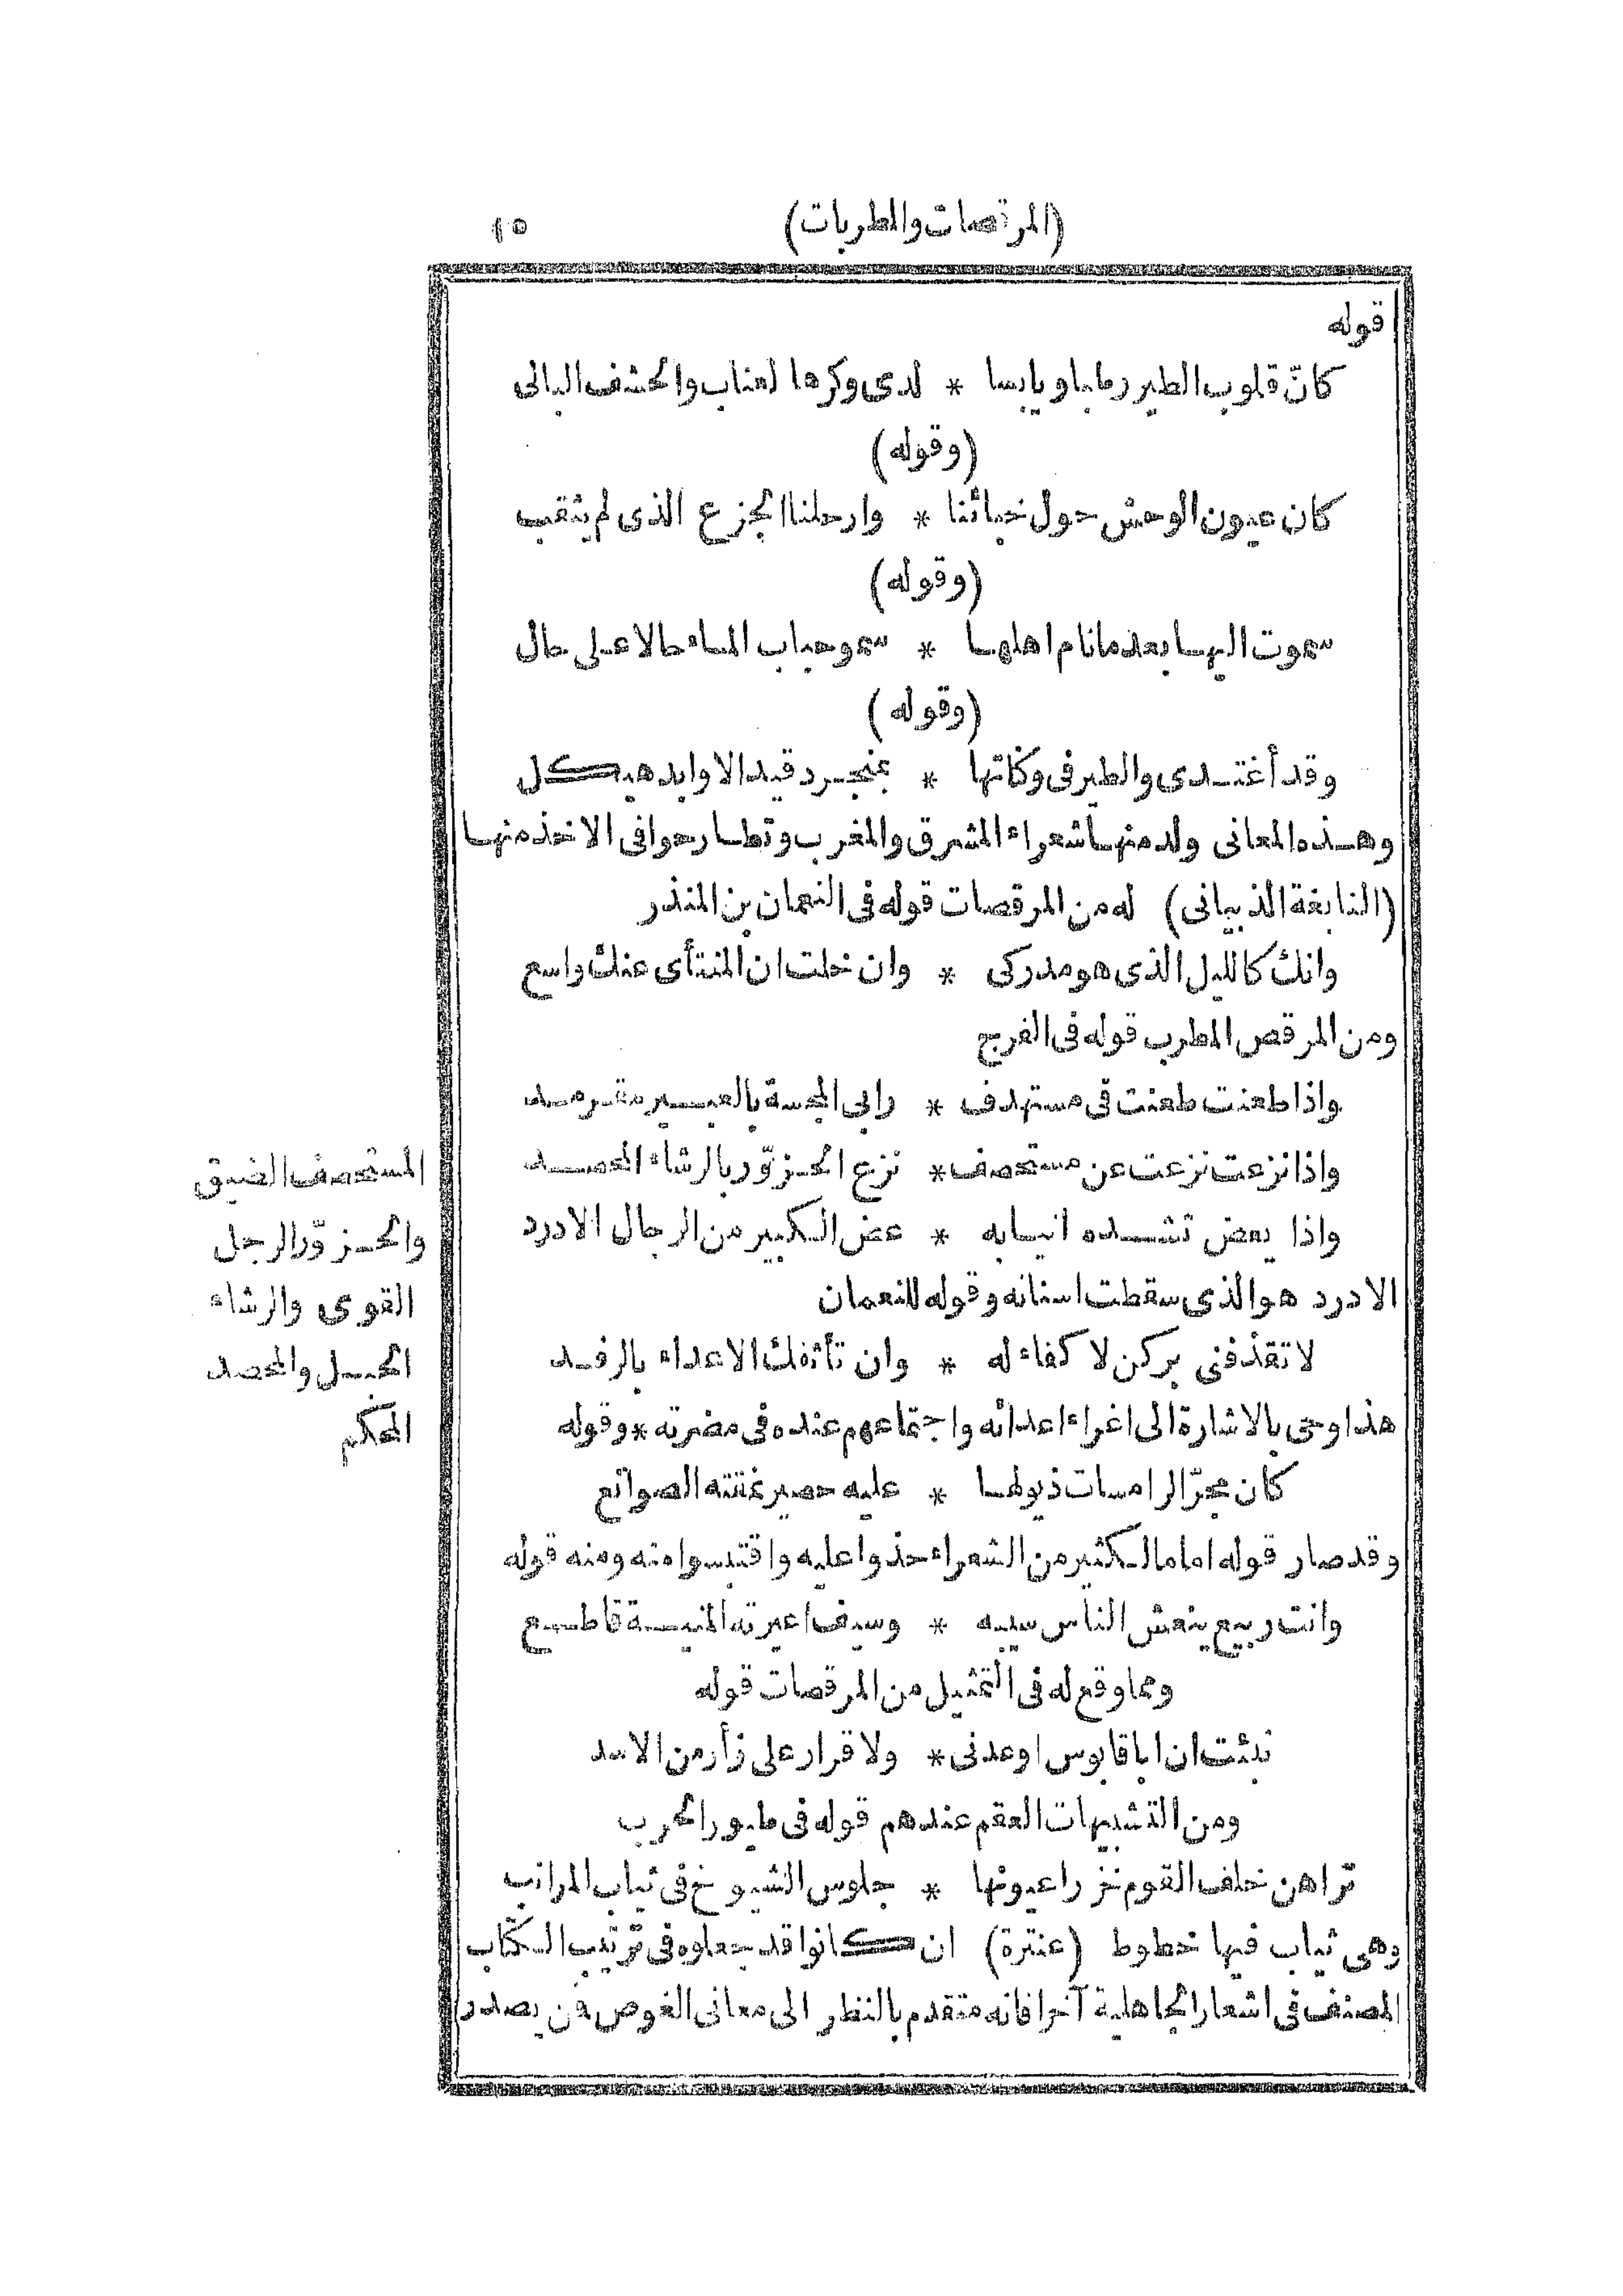 (المرقصات والمطربات) ١٥
قوله
كانّ قلوب الطير رطبا ويابسا * لدى وكرها العناب والحشف البالى
(وقوله)
كان عيون الوحش حول خبائنا * وارحلنا الجزع الذى لم يثقب
(وقوله)
سموت اليها بعد ما نام اهلها * سمو حباب الماء حالا على حال
(وقوله)
وقد أغتدى والطير فى وكناتها * بمنجرد قيد الاوابد هيكل
وهذه المعانى ولد منها شعراء المشرق والمغرب وتطارحوا فى الاخذ منها
(النابغة الذبيانى) له من المرقصات قوله فى النعمان بن المنذر
وانك كالليل الذى هو مدركى * وان خلت ان المنتأى عنك واسع
ومن المرقص المطرب قوله فى الفرج
واذا طعنت طعنت فى مستهدف * رابى المجسة بالعبير مقرمد
واذا نزعت نزعت عن مستحصف * نزع الحزوّر بالرشاء المحصد
واذا يعض تشده انيابه * عض الكبير من الرجال الادرد
الادرد هو الذى سقطت اسنانه وقوله للنعمان
لا تقذفنى بركن لا كفاء له * وان تأثفك الاعداء بالرفد
هذا وحى بالاشارة الى اغراء اعدائه واجتماعهم عنده فى مضرته * وقوله
كان مجرّ الرامسات ذيولها * عليه حصير نمقته الصوانع
وقد صار قوله اماما لكثير من الشعراء حذوا عليه واقتبسوا منه ومنه قوله
وانت ربيع ينعش الناس سيبه * وسيف اعيرته المنية قاطع
ومما وقع له فى التمثيل من المرقصات قوله
نبئت ان ابا قابوس اوعدنى * ولا قرار على زأر من الاسد
ومن التشبيهات العقم عندهم قوله فى طيور الحرب
تراهن خلف القوم خزرا عيونها * جلوس الشيوخ فى ثياب المرانب
وهى ثياب فيها خطوط (عنترة) ان كانوا قد جعلوه فى ترتيب الكتاب
المصنف فى اشعار الجاهلية آخرا فانه متقدم بالنظر الى معانى الغوص فمن يصدر
المستحصف الضيق
والحزوّر الرجل
القوى والرشاء
الحبل والمحصد
المحكم